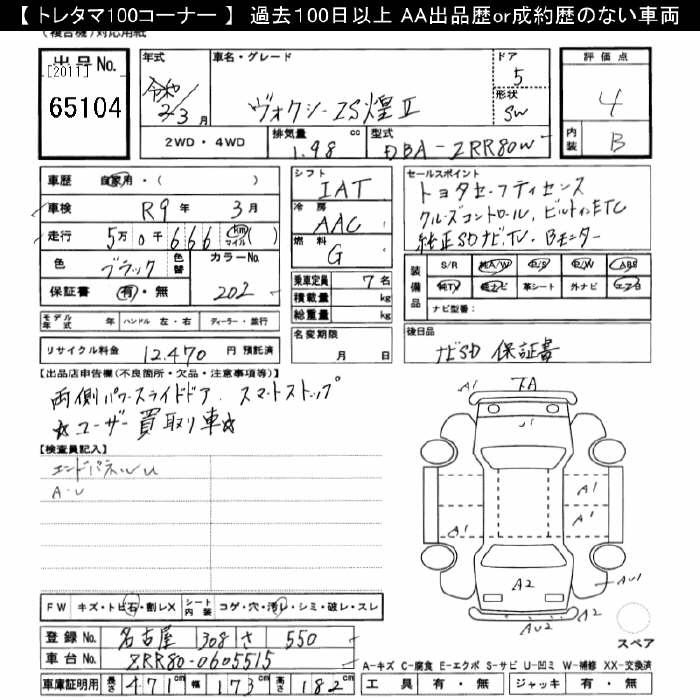 【 トレタマ100コーナー 】 過去100日以上 AA出品歴or成約歴のない車両
(複合機)対応用紙
出品No.
[2011]
65104
年式
令和
2/3月
車名・グレード
ヴォクシーZS煌Ⅱ
ドア
5
形状
SW
評価点
4
内装
B
2WD・4WD
排気量 1.98 cc
型式 DBA-ZRR80W
車歴 自家用・( )
車検 R9年 3月
走行 5万0千666 (km マイル)( )
色 ブラック
色替
カラーNo. 202
保証書 有・無
シフト
IAT
冷房
AAC
燃料
G
乗車定員 7名
積載量 kg
総重量 kg
セールスポイント
トヨタセーフティセンス
クルーズコントロール, ビルトインETC
純正SDナビTV, Bモニター
装備品
S/R 純A/W P/S P/W ABS
純TV 純ナビ 革シート 外ナビ エアB
ナビ型番:
モデル年式 年 ハンドル 左・右 ディーラー・並行
リサイクル料金 12,470 円 預託済
名変期限
月 日
後日品
ナビSD 保証書
【出品店申告欄(不良箇所・欠品・注意事項等)】
両側パワースライドドア. スマートストップ
☆ユーザー買取り車☆
【検査員記入】
エンドパネルU
A・U
A1
FA
U1
A1
A1
A1
A1
A2
AU1
A2
AU2
スペア
FW キズ・トビ石・割レX
シート内装 コゲ・穴・汚レ・シミ・破レ・スレ
登録No. 名古屋 308 さ 550
車台No. ZRR80-0605515
車庫証明用 長さ 471cm 幅 173cm 高さ 182cm
A-キズ C-腐食 E-エクボ S-サビ U-凹ミ W-補修 XX-交換済
工具 有・無 ジャッキ 有・無